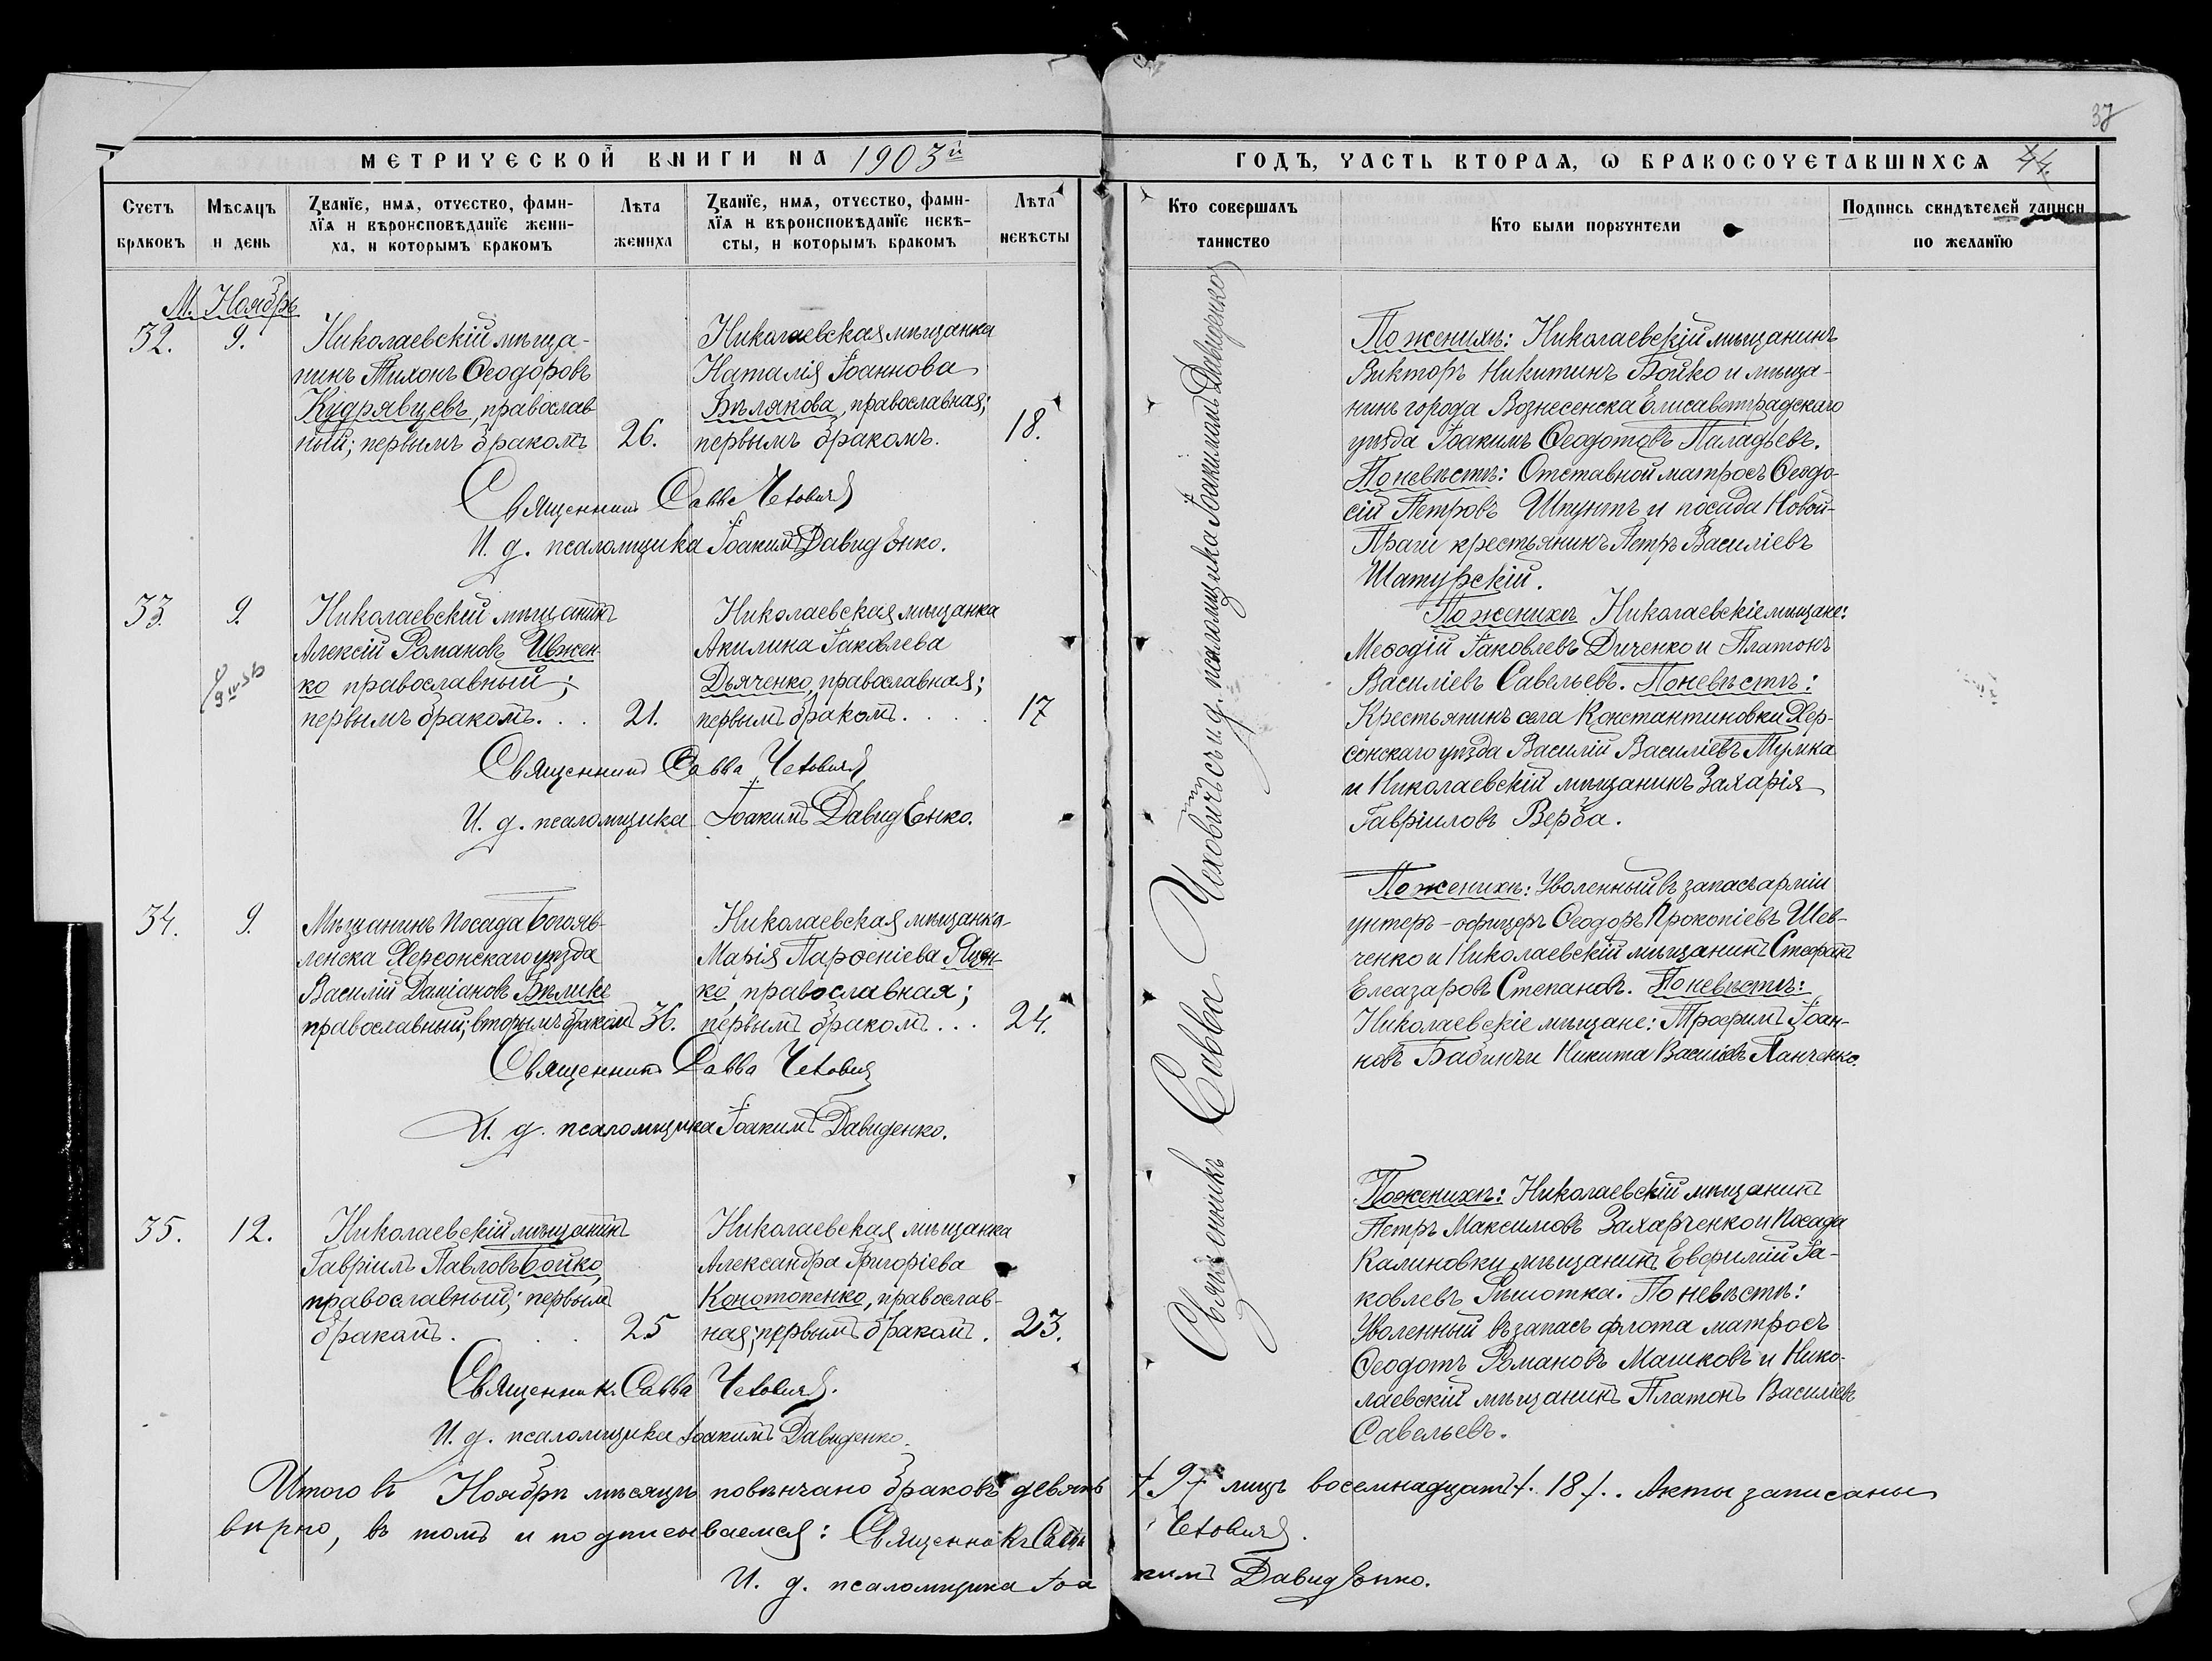 37
МЕТРИЧЕСКОЙ КНИГИ НА 1903й
ГОДЪ, ЧАСТЬ ВТОРАЯ, Ѡ БРАКОСОЧЕТАВШИХСЯ 44.
Счетъ браковъ
Мѣсяцъ и день
Званіе, имя, отчество, фами-
лія и вѣроисповѣданіе жени-
ха, и которымъ бракомъ
Лѣта жениха
Званіе, имя, отчество, фами-
лія и вѣроисповѣданіе невѣ-
сты, и которымъ бракомъ
Лѣта невѣсты
Кто совершалъ таинство
Кто были поручители
Подпись свидѣтелей записи по желанію
М. Ноябрь
32. 9.
Николаевскій мѣща-
нинъ Тихонъ Ѳеодоровъ
Кудрявцевъ, православ
ный; первымъ бракомъ 26.
Николаевская мѣщанка
Наталія Іоаннова
Бѣлякова, православная;
первымъ бракомъ. 18.
Священникъ Савва
И. д. псаломщика Іоакимъ Давиденко.
33. 9.
Николаевскій мѣщанинъ
Алексій Романовъ Ивжен
ко православный;
первымъ бракомъ. . . 21.
Николаевская мѣщанка
Акилина Іаковлева
Дьяченко, православная;
первымъ бракомъ. . . . 17
Священникъ Савва
И. д. псаломщика Іоакимъ Давиденко.
34. 9.
Мѣщанинъ посада Богояв-
ленска Херсонскаго уѣзда
Василій Даміановъ
православный; вторымъ бракомъ 36.
Николаевская мѣщанка
Марія Парѳеніева Яцен-
ко, православная;
первымъ бракомъ. . . 24.
Священникъ Савва
И. д. псаломщика Іоакимъ Давиденко.
35. 12.
Николаевскій мѣщанинъ
Гавріилъ Павловъ Бойко,
православный; первымъ
бракомъ. . . 25
Николаевская мѣщанка
Александра Григоріева
Конотопенко, православ-
ная; первымъ бракомъ. 23.
Священник. Савва
И. д. псаломщика Іоакимъ Давиденко.
Священникъ Савва Чеховичъ съ и. д. псаломщика Іоакимомъ Давиденко
По женихѣ: Николаевскій мѣщанинъ
Викторъ Никитинъ Бойко и мѣща-
нинъ города Вознесенска Елисаветградскаго
уѣзда Іоакимъ Ѳеодотовъ Паладьевъ.
По невѣстѣ: Отставной матросъ Ѳеодо-
сій Петровъ Шкунтъ и посада Новой-
Праги крестьянинъ Петръ Василіевъ
Шатурскій.
По женихѣ Николаевскіе мѣщане:
Меѳодій Іаковлевъ Диченко и Платонъ
Василіевъ Савельевъ. По невѣстѣ:
Крестьянинъ села Константиновки Хер-
сонскаго уѣзда Василій Василіевъ
и Николаевскій мѣщанинъ Захарія
Гавріиловъ Верба.
По женихѣ: Уволенный въ запасъ арміи
унтеръ-офицеръ Ѳеодоръ Прокопіевъ Шев-
ченко и Николаевскій мѣщанинъ Стефанъ
Елеазаровъ Степановъ. По невѣстѣ:
Николаевскіе мѣщане: Трофимъ Іоан-
новъ Бабинъ и Никита Василіевъ Панченко.
По женихѣ: Николаевскій мѣщанинъ
Петръ Максимовъ Захарченко и посада
Калиновки мѣщанинъ Евфимій Іа-
ковлевъ Рѣшотка. По невѣстѣ:
Уволенный въ запасъ флота матросъ
Ѳеодотъ Романовъ Машковъ и Нико-
лаевскій мѣщанинъ Платонъ Василіевъ
Савельевъ.
Итого въ Ноябрѣ мѣсяцѣ повѣнчано браковъ девять +9+ лицъ восемнадцать +. 18 +. . Акты записаны
вѣрно, въ томъ и подписываемся: Священникъ Савва
И. д. псаломщика Іоакимъ Давиденко.